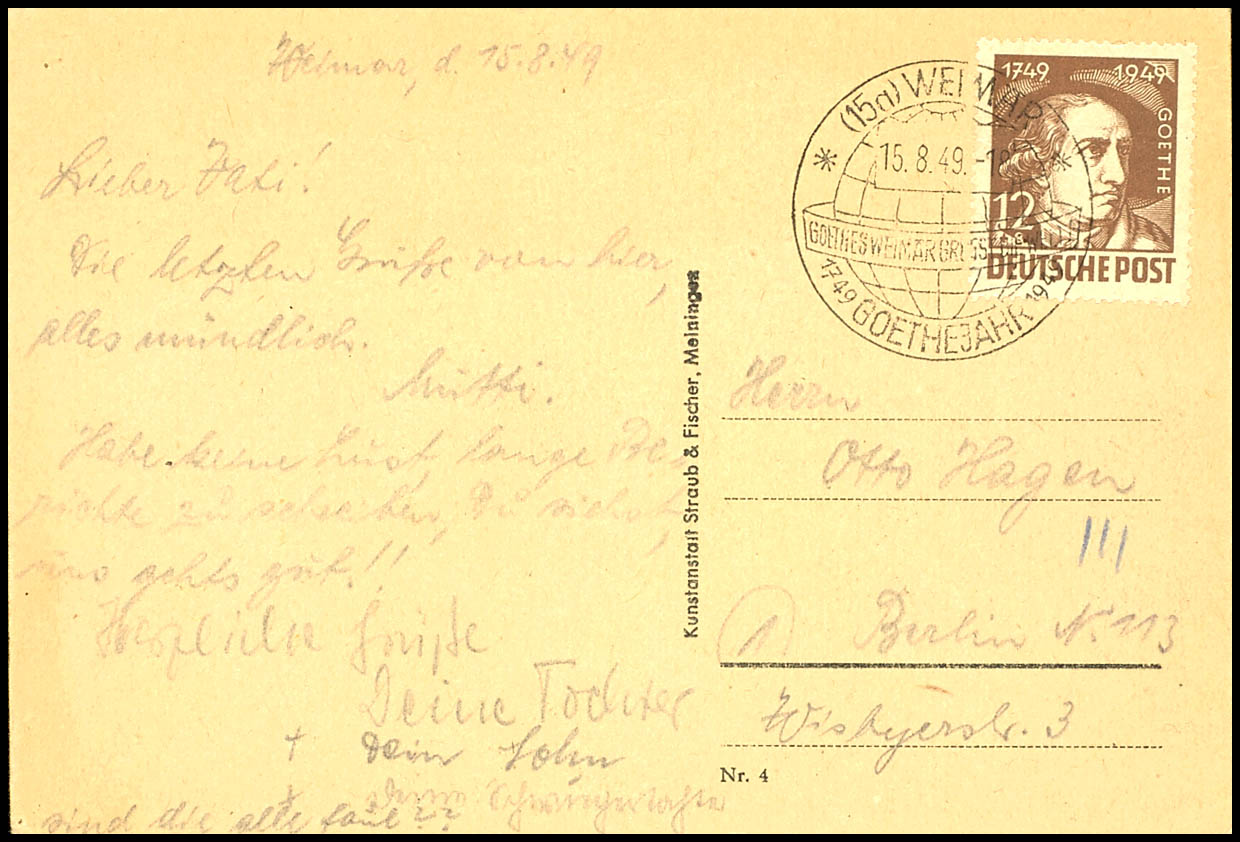 Weimar, d. 15.8.49
Lieber Fati!
Die letzten Grüße von hier,
alles mündlich.
Mutti.
Habe keine Lust, lange Be-
richte zu schreiben, Du siehst,
uns gehts gut!!
Herzliche Grüße
Deine Tochter
+ Dein Sohn
+ deine Schwiegertochter
sind die alle faul??
Kunstanstalt Straub & Fischer, Meiningen
(15a) WEIMAR
15.8.49.-18
GOETHES WEIMAR GRÜSST DIE WELT
1749 GOETHEJAHR 1949
1749 1949
GOETHE
12
DEUTSCHE POST
Herrn
Otto Hagen
III
(1) Berlin N. 113
Wisbyerstr. 3
Nr. 4